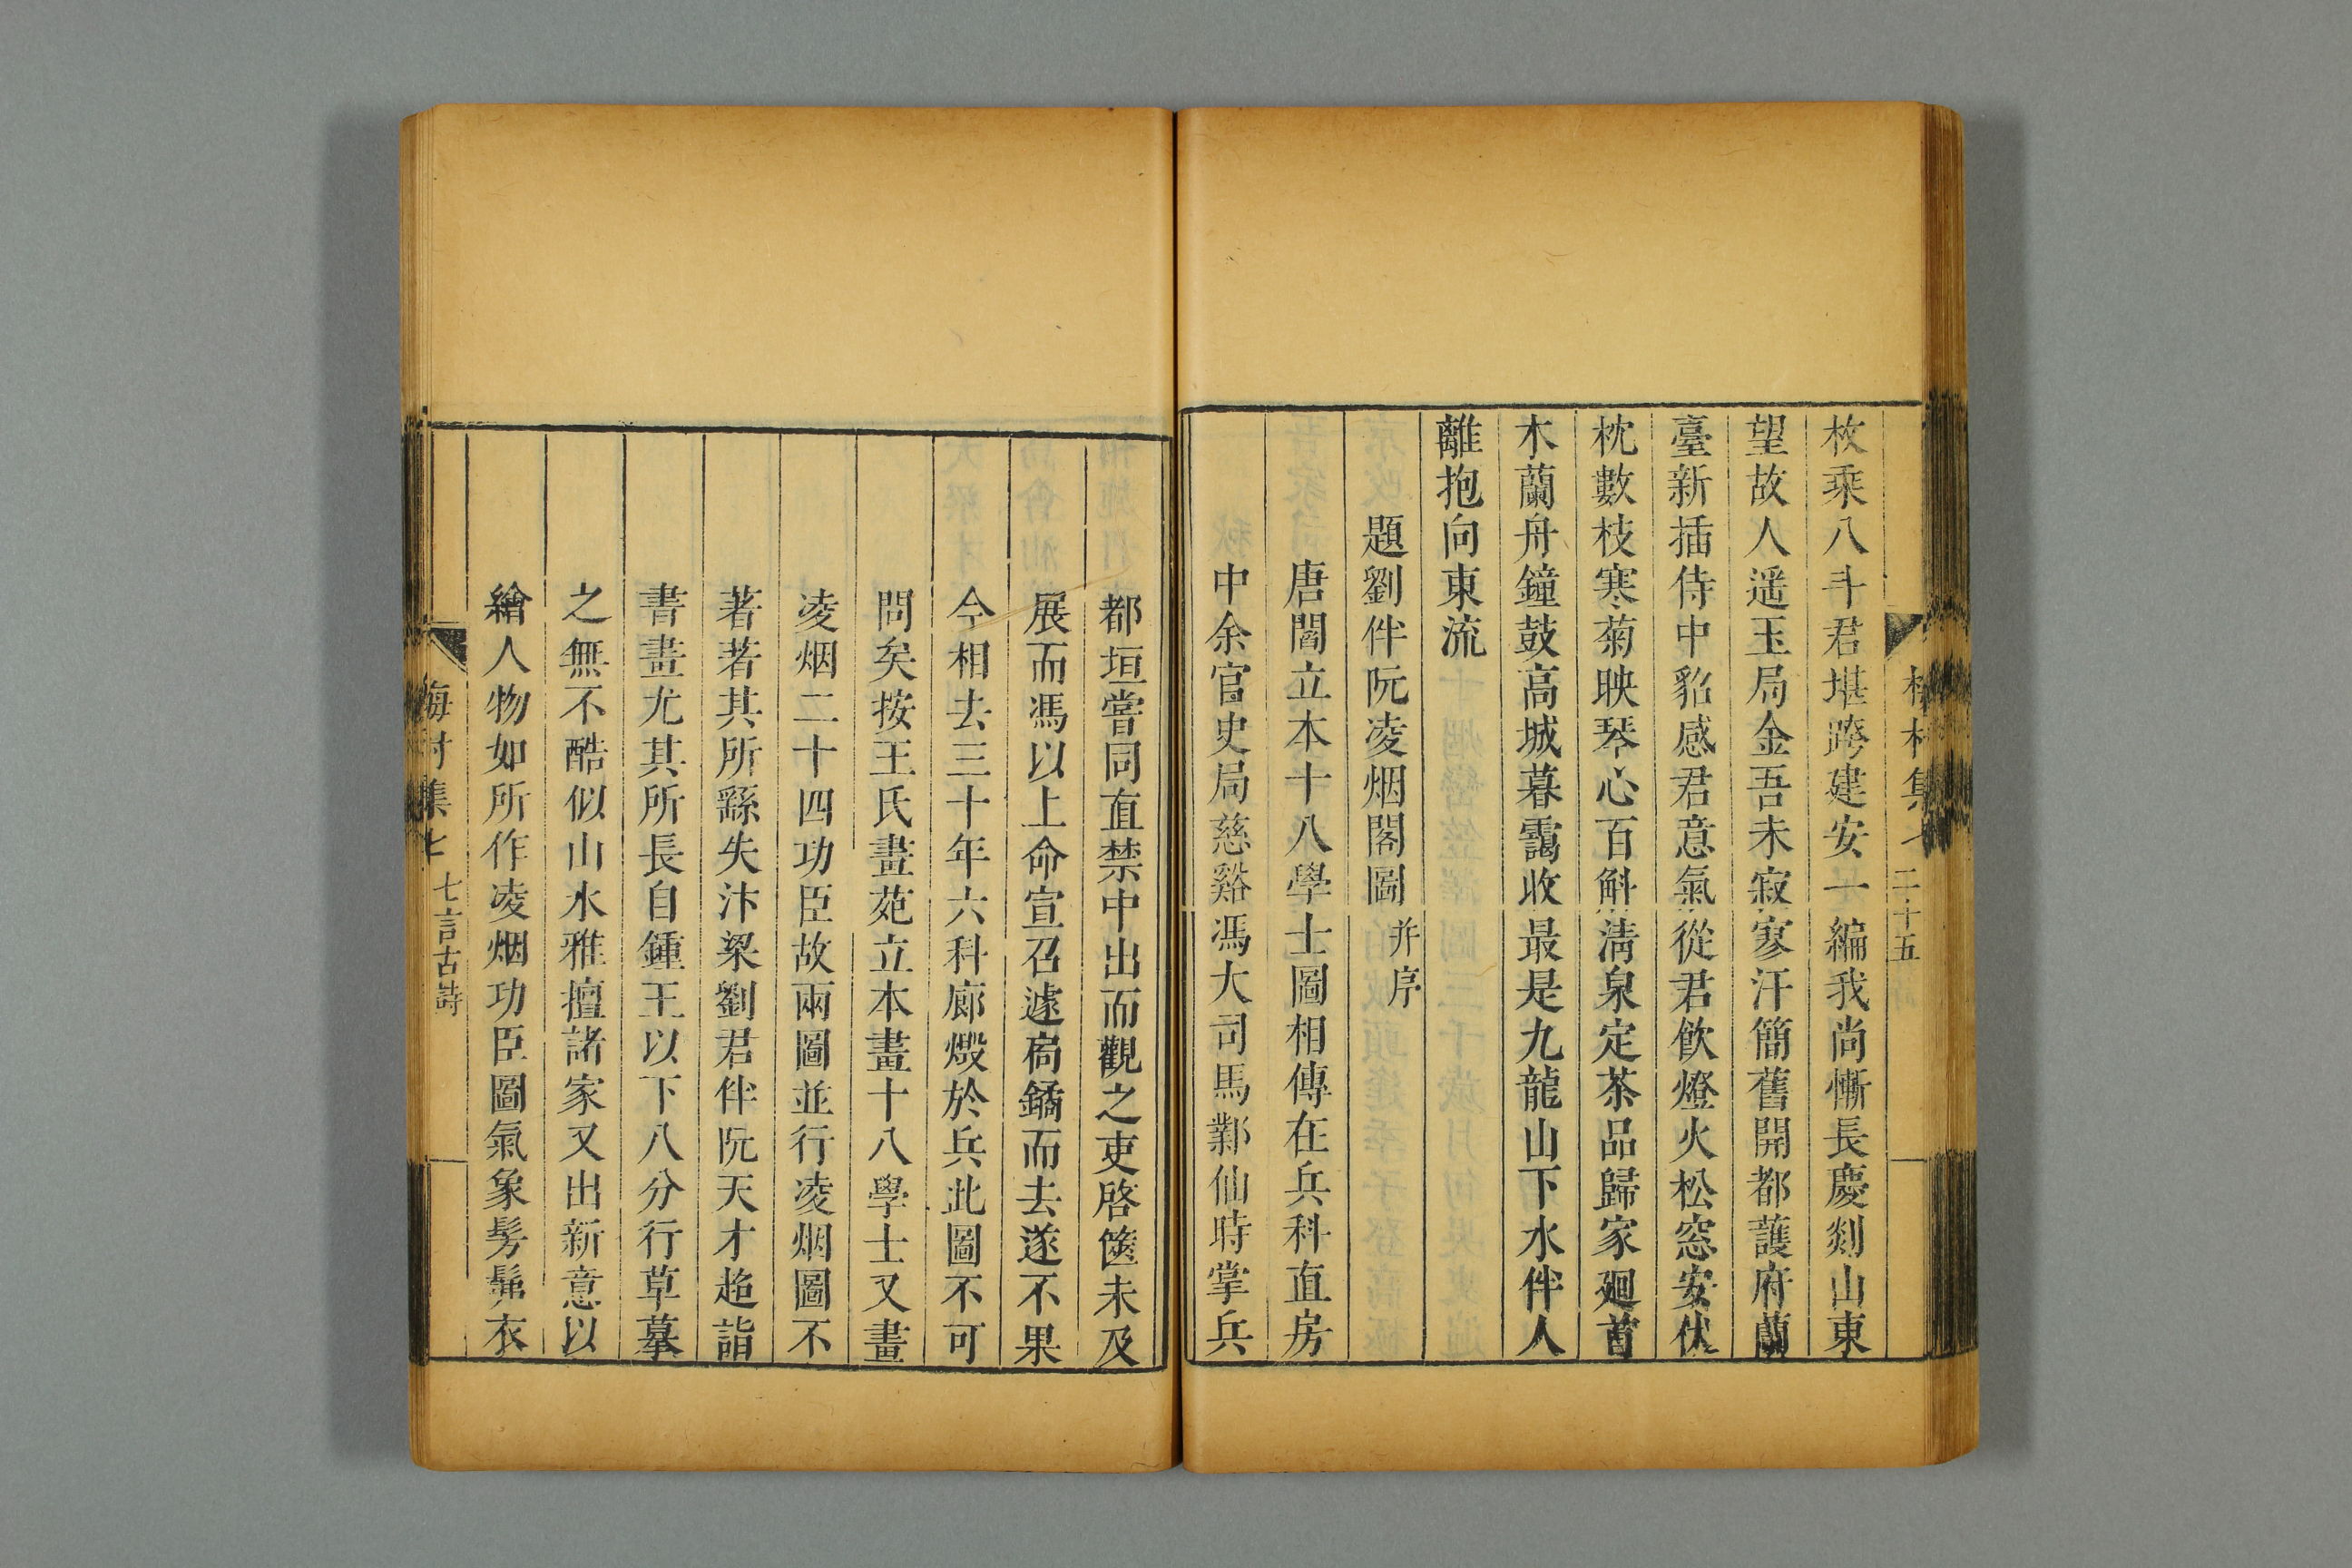 二十五
枚乘八斗君堪跨建安一編我尚慚長慶剡山東
望故人遥玉局金吾未寂寥汗簡舊開都護府蘭
臺新插侍中貂感君意氣從君飲燈火松窓安伏
枕數枝寒菊映琴心百斛清泉定茶品歸家廻首
木蘭舟鐘鼓高城暮靄收最是九龍山下水伴人
離抱向東流
題劉伴阮凌烟閣圖并序
唐閻立本十八學士圖相傳在兵科直房
中余官史局慈谿馮大司馬鄴仙時掌兵
都垣嘗同直禁中出而觀之吏啓篋未及
展而馮以上命宣召遽扃鐍而去遂不果
今相去三十年六科廊燬於兵此圖不可
問矣按王氏畫苑立本畫十八學士又畫
凌烟二十四功臣故兩圖並行凌烟圖不
著著其所繇失汴梁劉君伴阮天才趫詣
書畫尤其所長自鍾王以下八分行草摹
之無不酷似山水雅擅諸家又出新意以
繪人物如所作凌烟功臣圖氣象髣髴衣
梅村集七 七言古詩